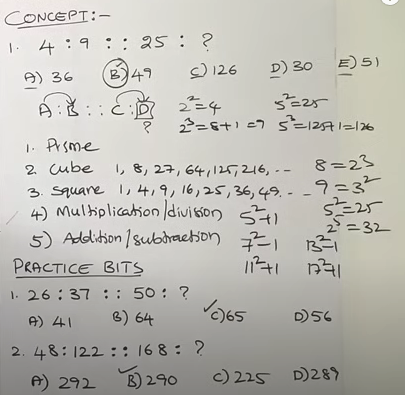 CONCEPT:-
1. 4 : 9 :: 25 : ?
A) 36 B) 49 C) 126 D) 30 E) 51
A : B :: C : D 2²=4 5²=25
? 2³=8+1=9 5³=125+1=126
1. Prisme
2. cube 1, 8, 27, 64, 125, 216, .. 8=2³
3. square 1, 4, 9, 16, 25, 36, 49. .. 9=3²
4) Multiplication/division 5²+1 5²=25
2⁵=32
5) Addition/subtraction 7²-1 13²-1
11²+1 17²+1
PRACTICE BITS
1. 26 : 37 :: 50 : ?
A) 41 B) 64 C) 65 D) 56
2. 48 : 122 :: 168 : ?
A) 292 B) 290 C) 225 D) 289